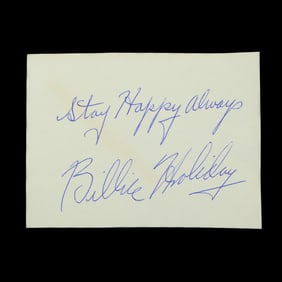 Stay Happy Always
Billie Holiday